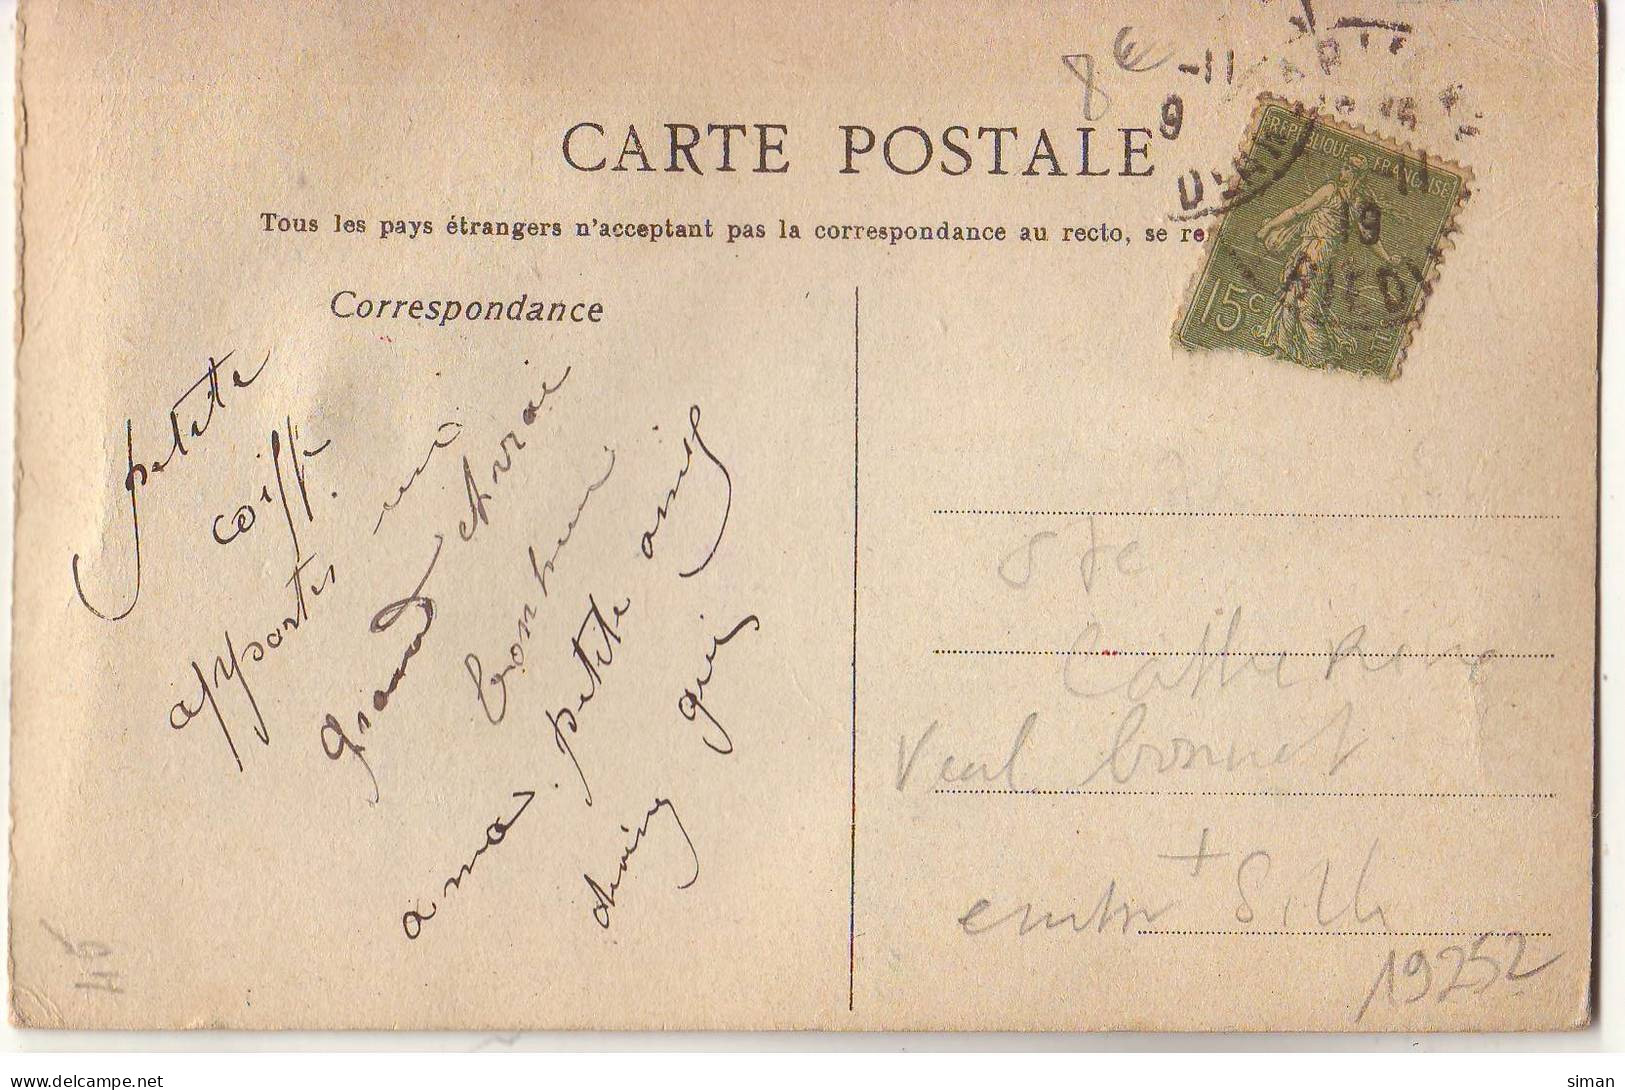 8€
9 -11
CARTE POSTALE
Tous les pays étrangers n'acceptant pas la correspondance au recto, se re
REPUBLIQUE FRANÇAISE
11
19
15c
Correspondance
petite
coiffe
apportes un
grand et vrai
bonheur
a ma petite amie
Ste
Catherine
bonnet
+
19252
siman
delcampe.net